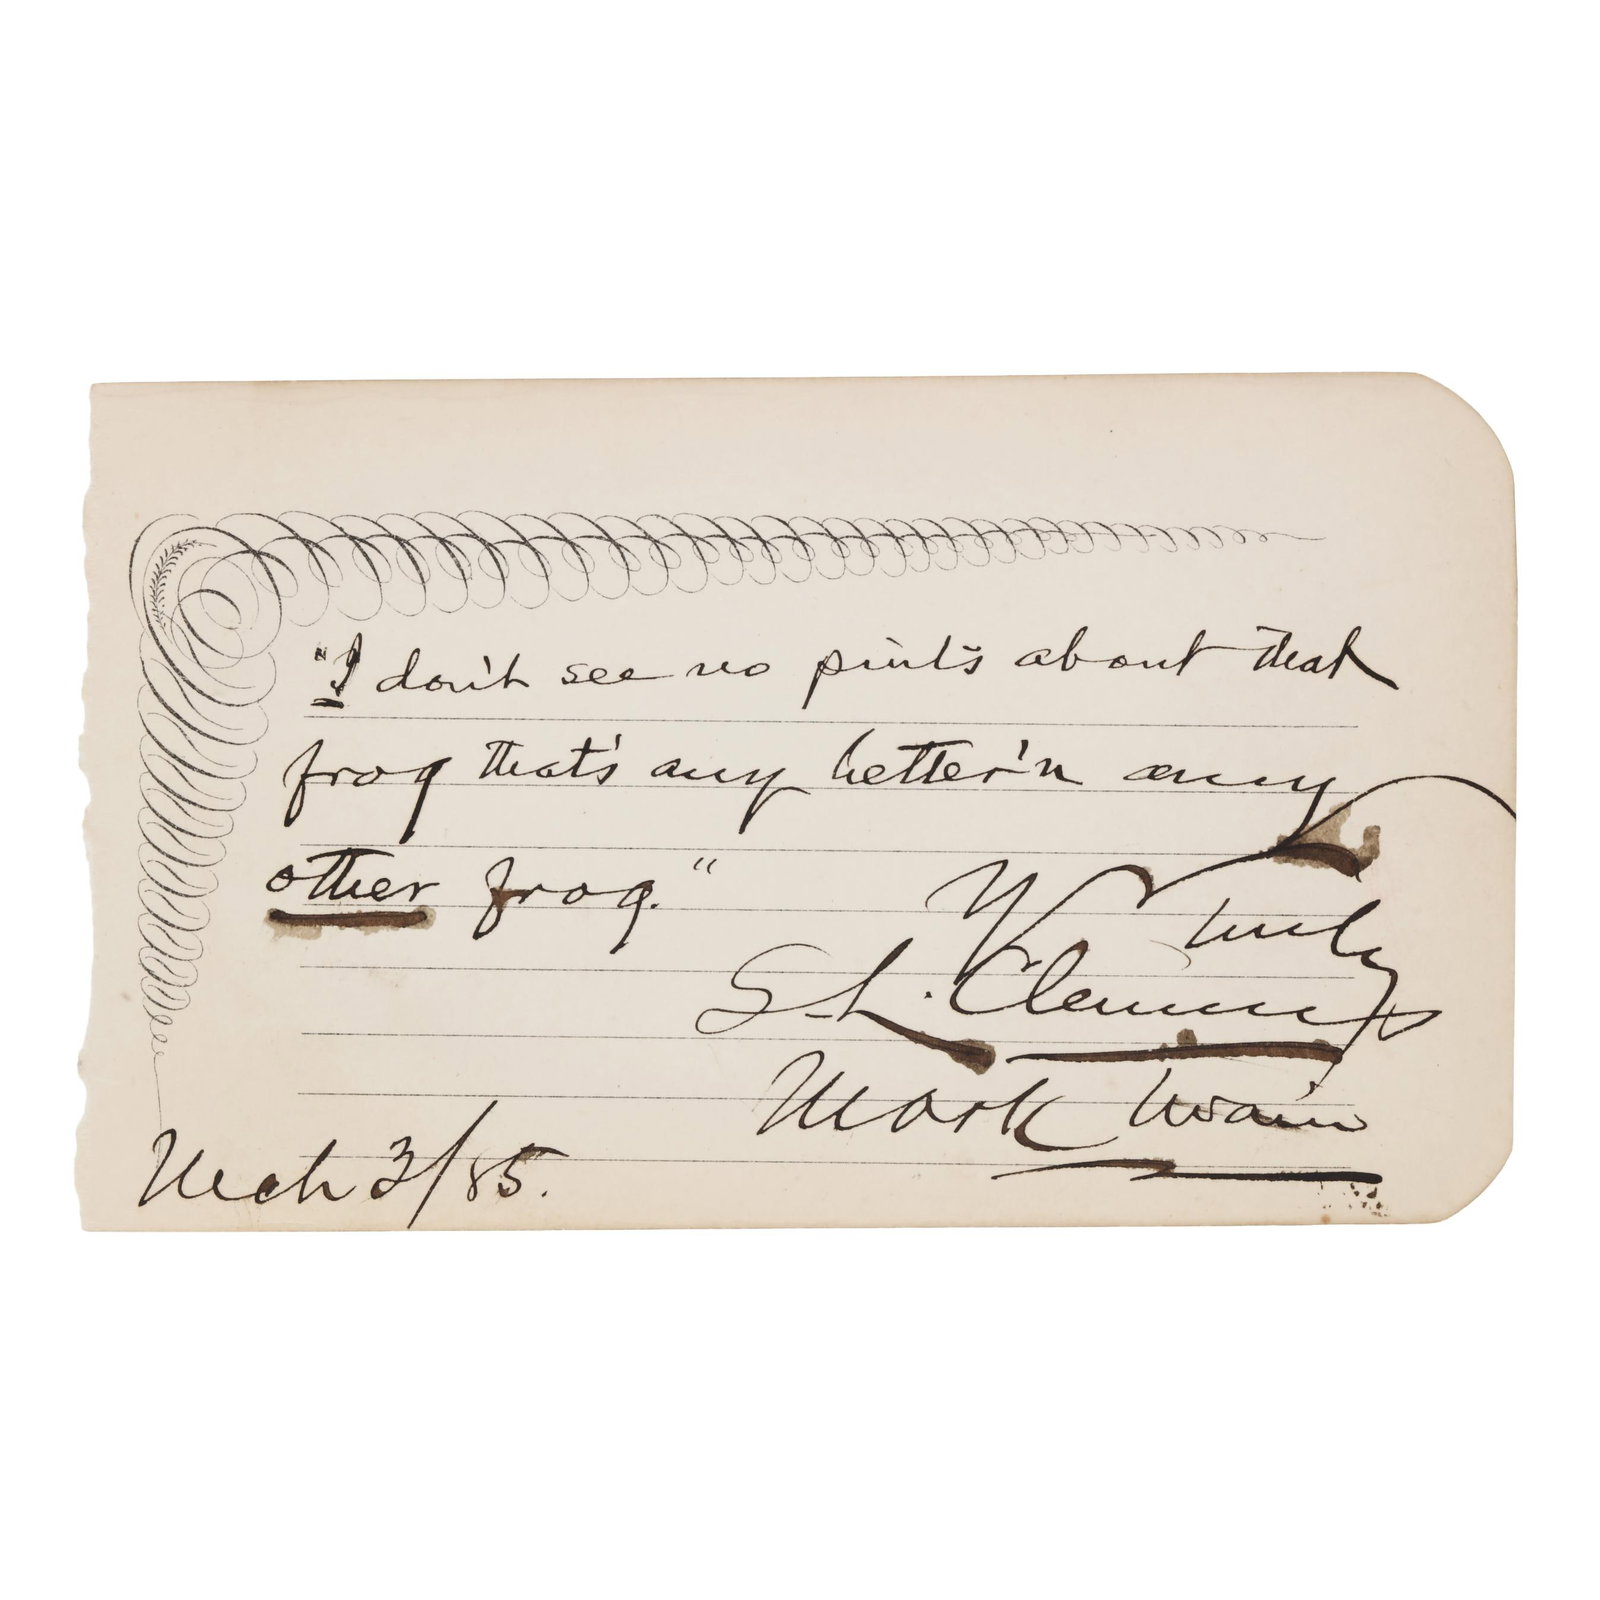 "I don't see no pints about that
frog that's any better'n any
other frog."
Y Truly
S. L. Clemens
Mark Twain
Mch 3/85.